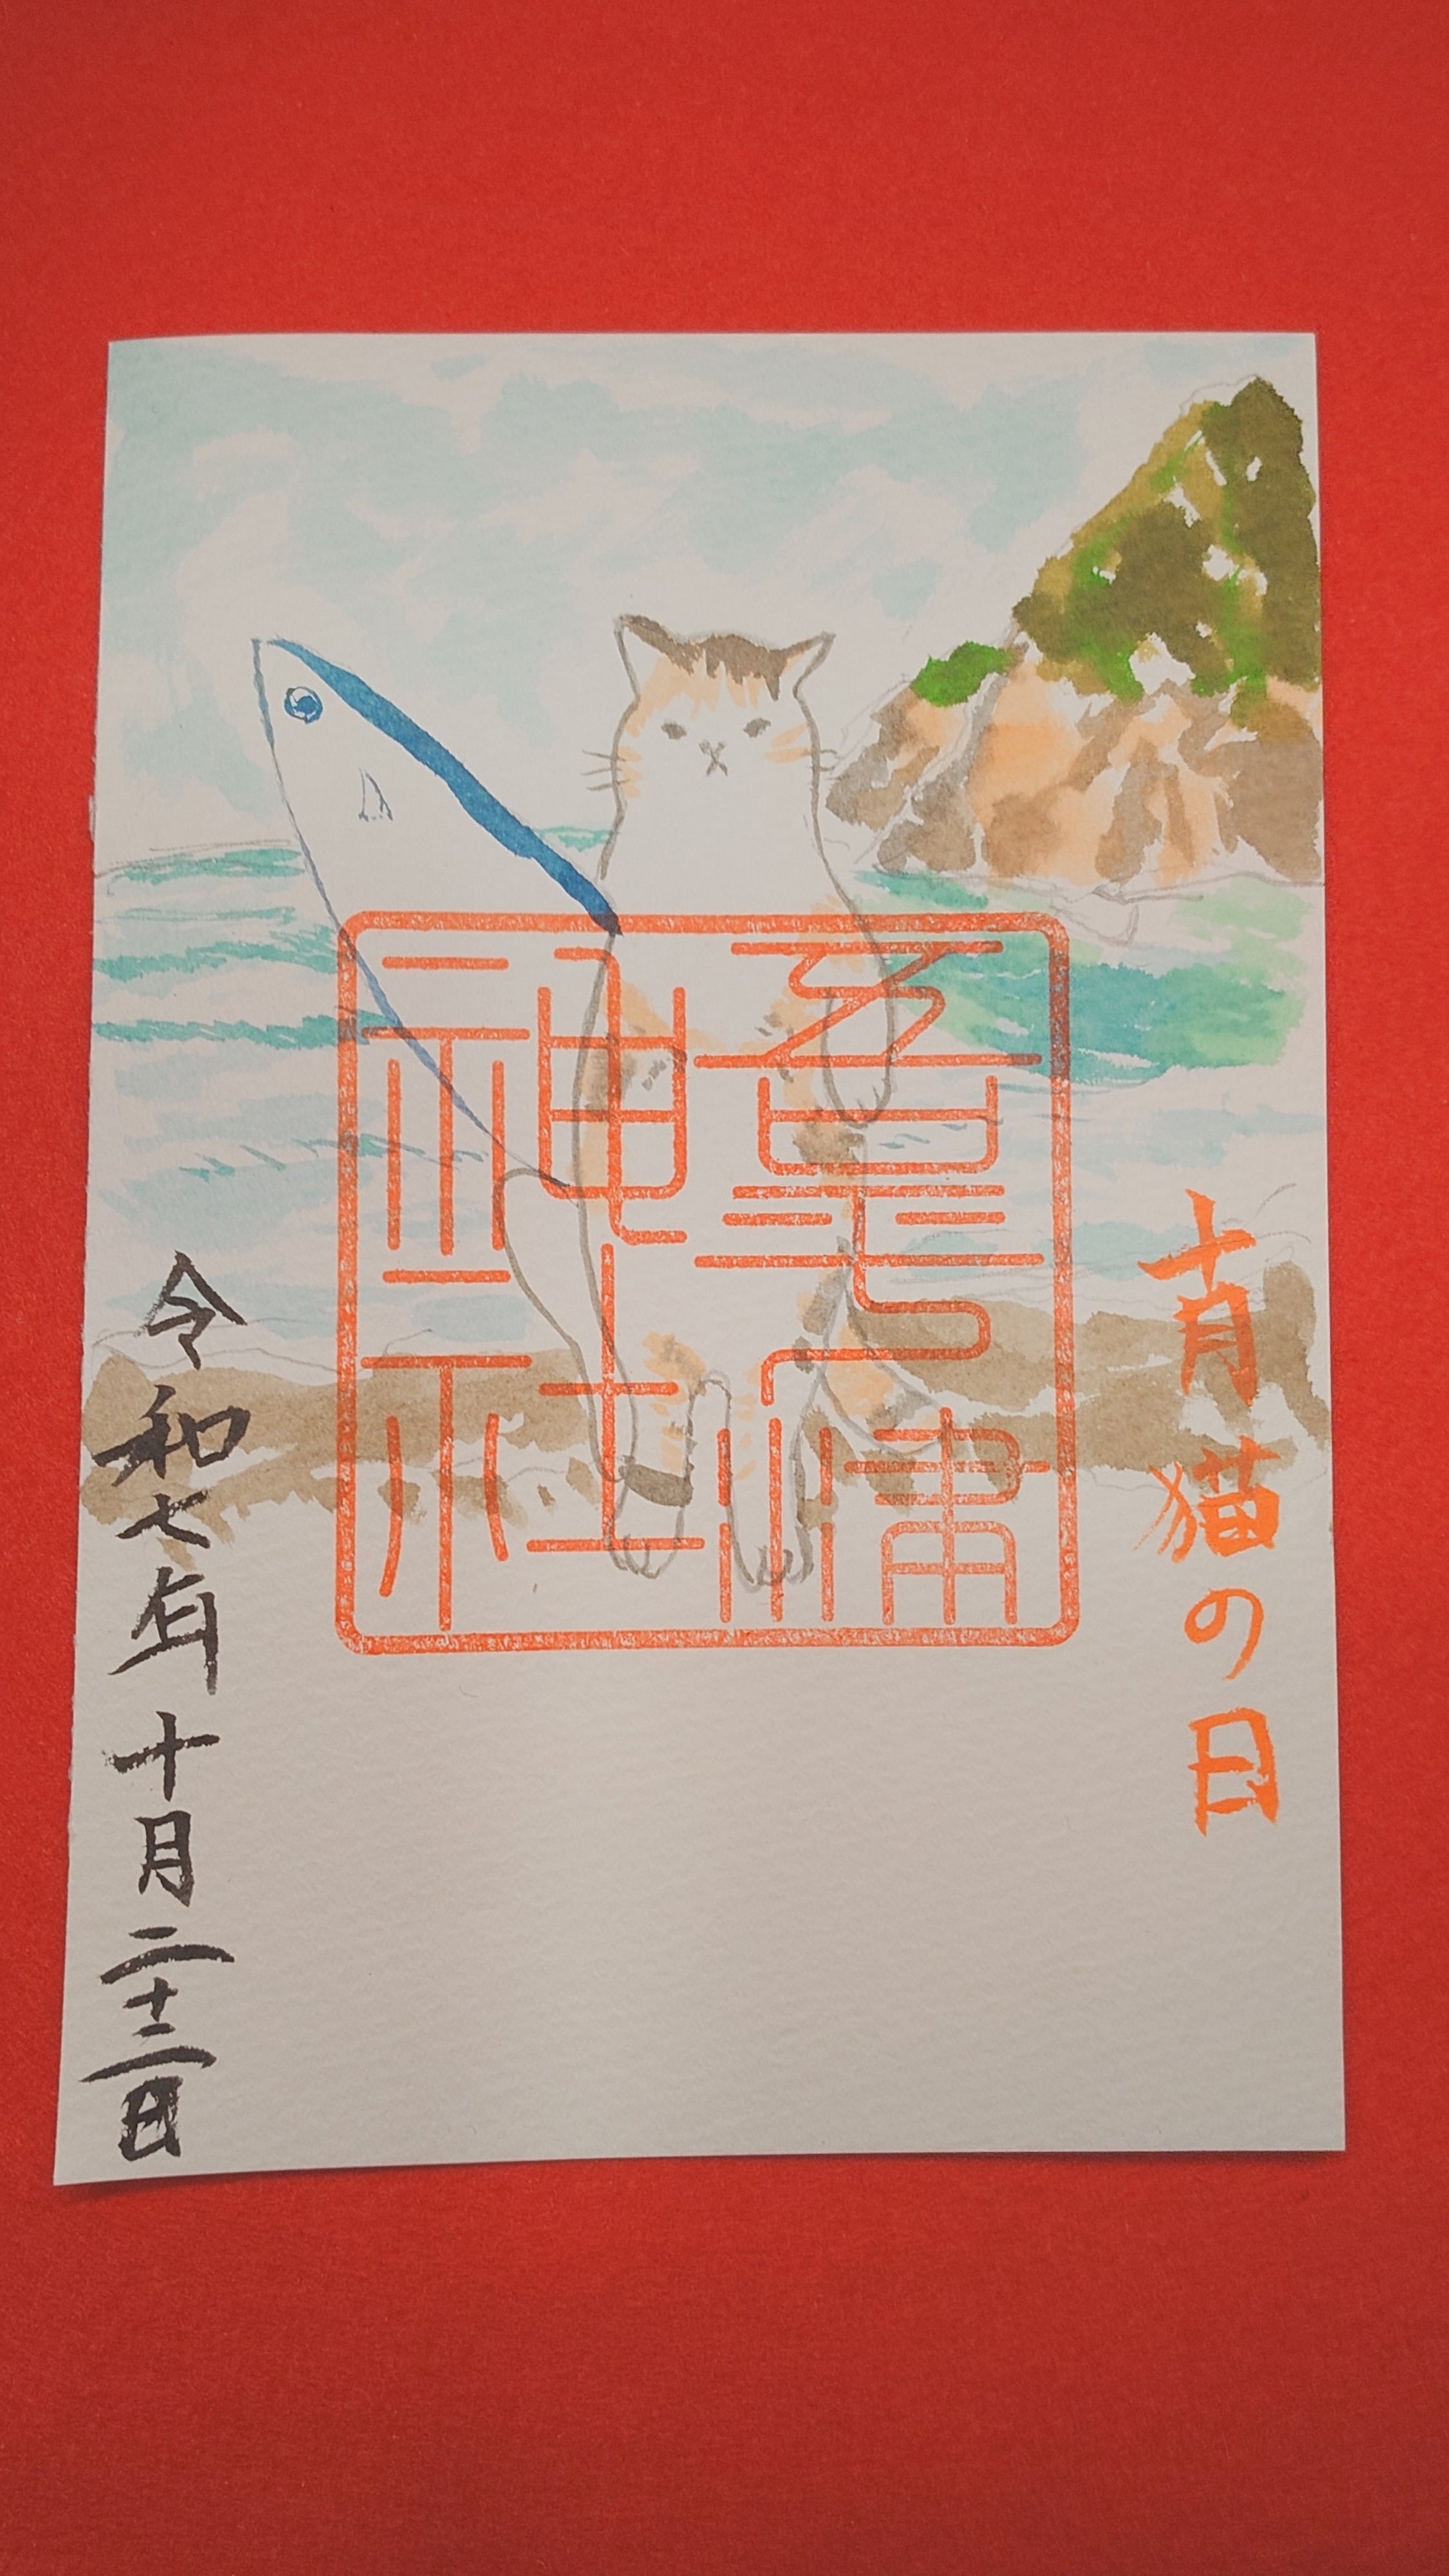 十月猫の日
浦
神社
令和七年十月二十二日